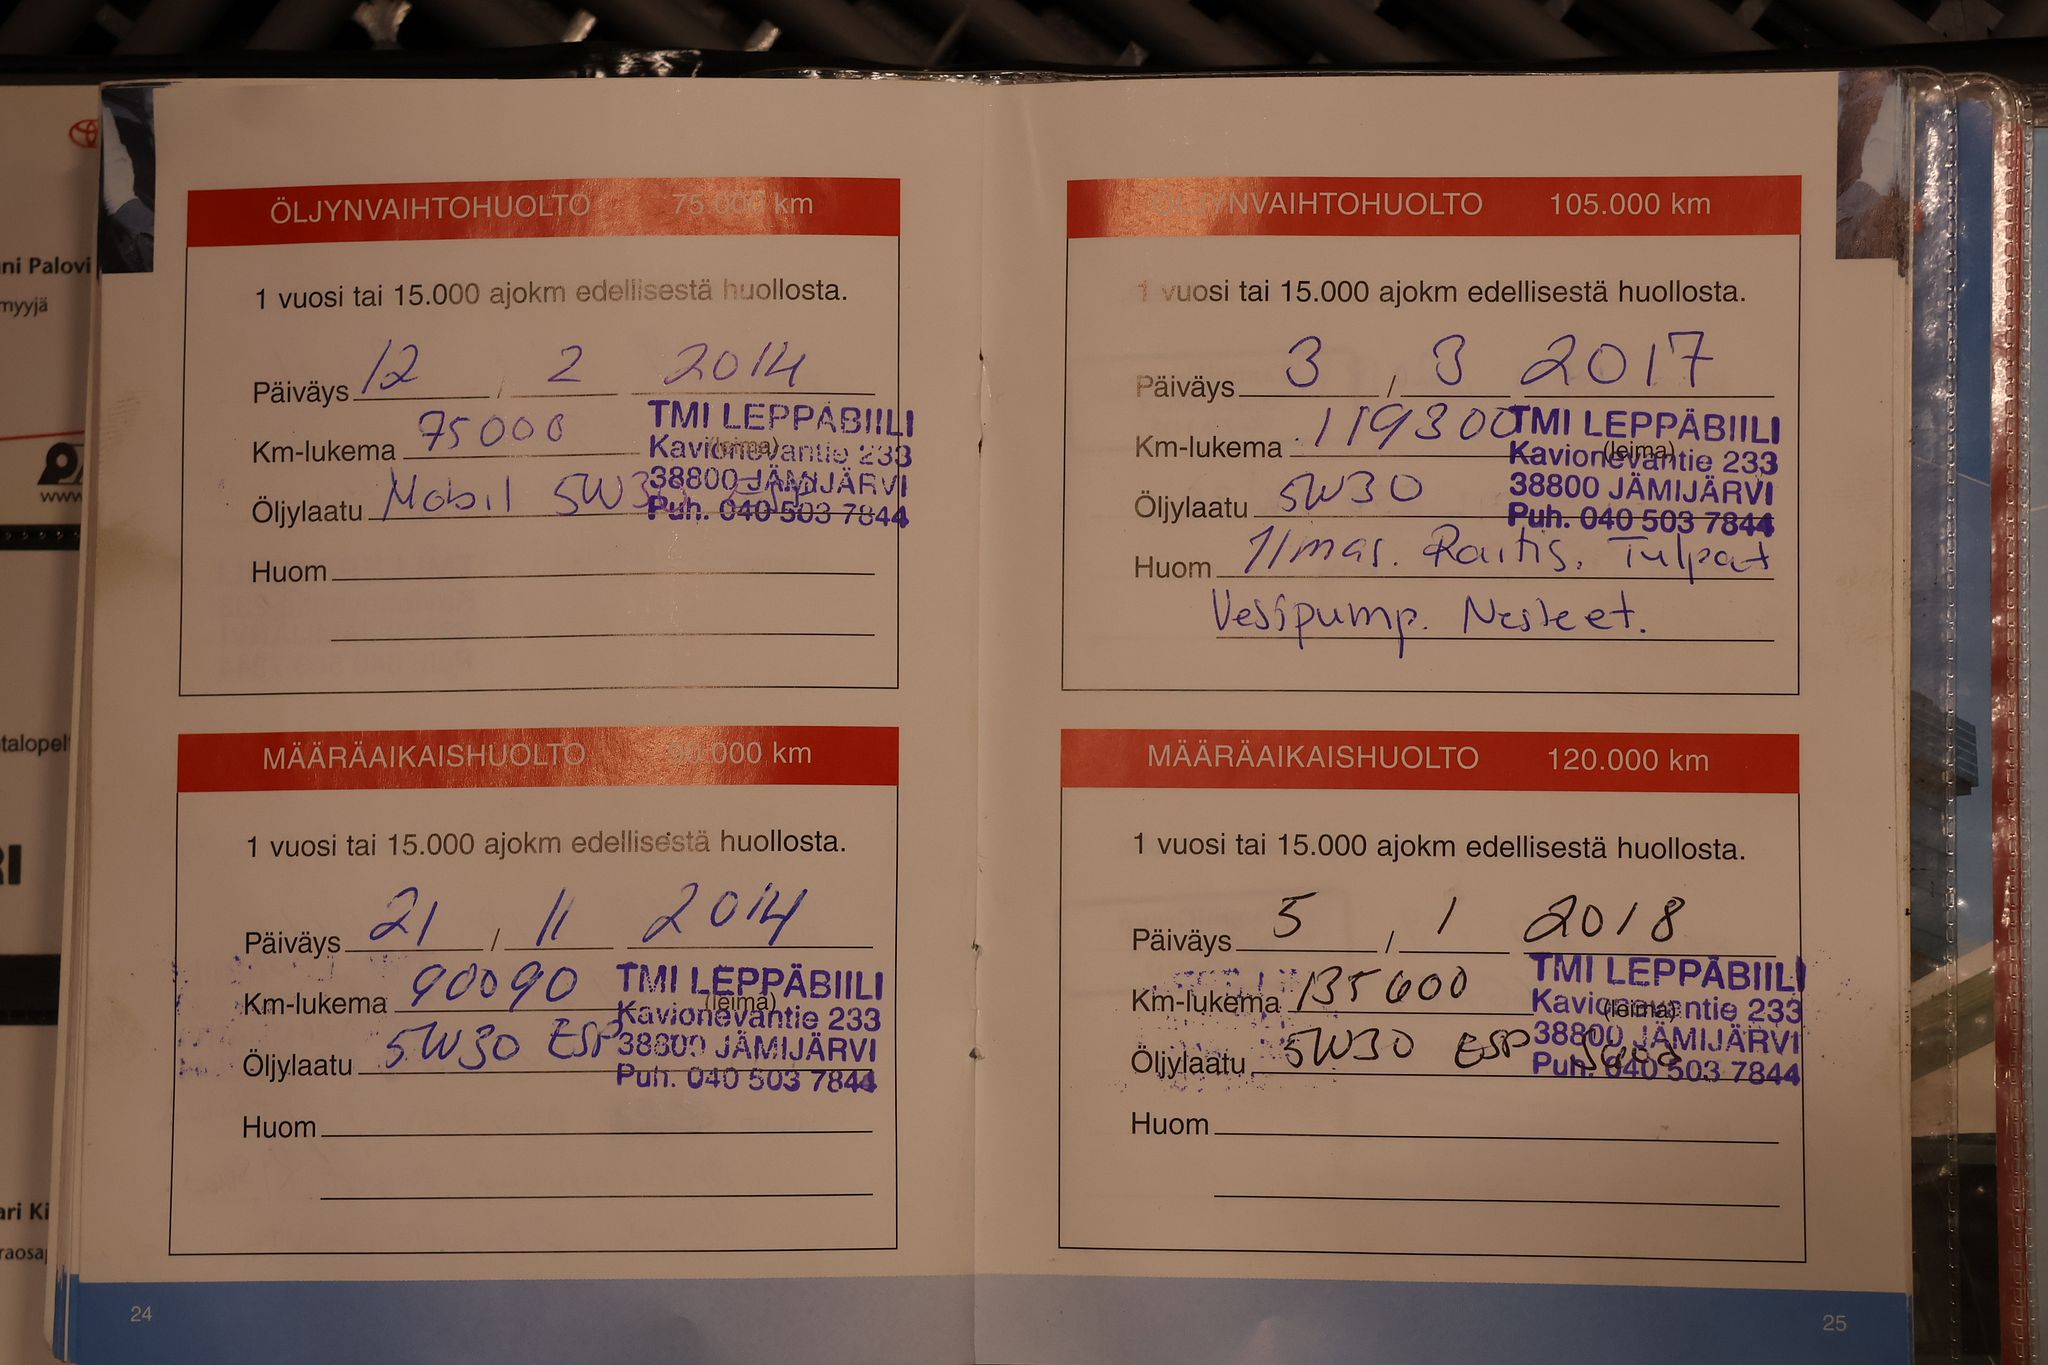 ÖLJYNVAIHTOHUOLTO 75.000 km
1 vuosi tai 15.000 ajokm edellisestä huollosta.
Päiväys 12 / 2 2014
Km-lukema 75000 (leima)
Öljylaatu Mobil 5W30 ESP
TMI LEPPÄBIILI
Kavionevantie 233
38800 JÄMIJÄRVI
Puh. 040 503 7844
Huom
MÄÄRÄAIKAISHUOLTO 90.000 km
1 vuosi tai 15.000 ajokm edellisestä huollosta.
Päiväys 21 / 11 2014
Km-lukema 90090 (leima)
Öljylaatu 5W30 ESP
TMI LEPPÄBIILI
Kavionevantie 233
38800 JÄMIJÄRVI
Puh. 040 503 7844
Huom
24
ÖLJYNVAIHTOHUOLTO 105.000 km
1 vuosi tai 15.000 ajokm edellisestä huollosta.
Päiväys 3 / 3 2017
Km-lukema 119300 (leima)
Öljylaatu 5W30
TMI LEPPÄBIILI
Kavionevantie 233
38800 JÄMIJÄRVI
Puh. 040 503 7844
Huom Ilmas. Raitis. Tulpat
Vesipump. Nesteet.
MÄÄRÄAIKAISHUOLTO 120.000 km
1 vuosi tai 15.000 ajokm edellisestä huollosta.
Päiväys 5 / 1 2018
Km-lukema 135600 (leima)
Öljylaatu 5W30 ESP
TMI LEPPÄBIILI
Kavionevantie 233
38800 JÄMIJÄRVI
Puh. 040 503 7844
Huom
25
ni Palovi
myyjä
www
talopelt
RI
ari Ki
raosa